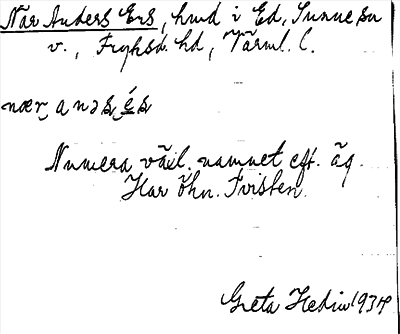 När Anders Ers, hmd i Ed, Sunne sn
v., Fryksd. hd, Värml. l.
nær, anəs, és
Numera växl. namnet eft. äg.
Har öhn. Tvisten.
Greta Hedin 1934